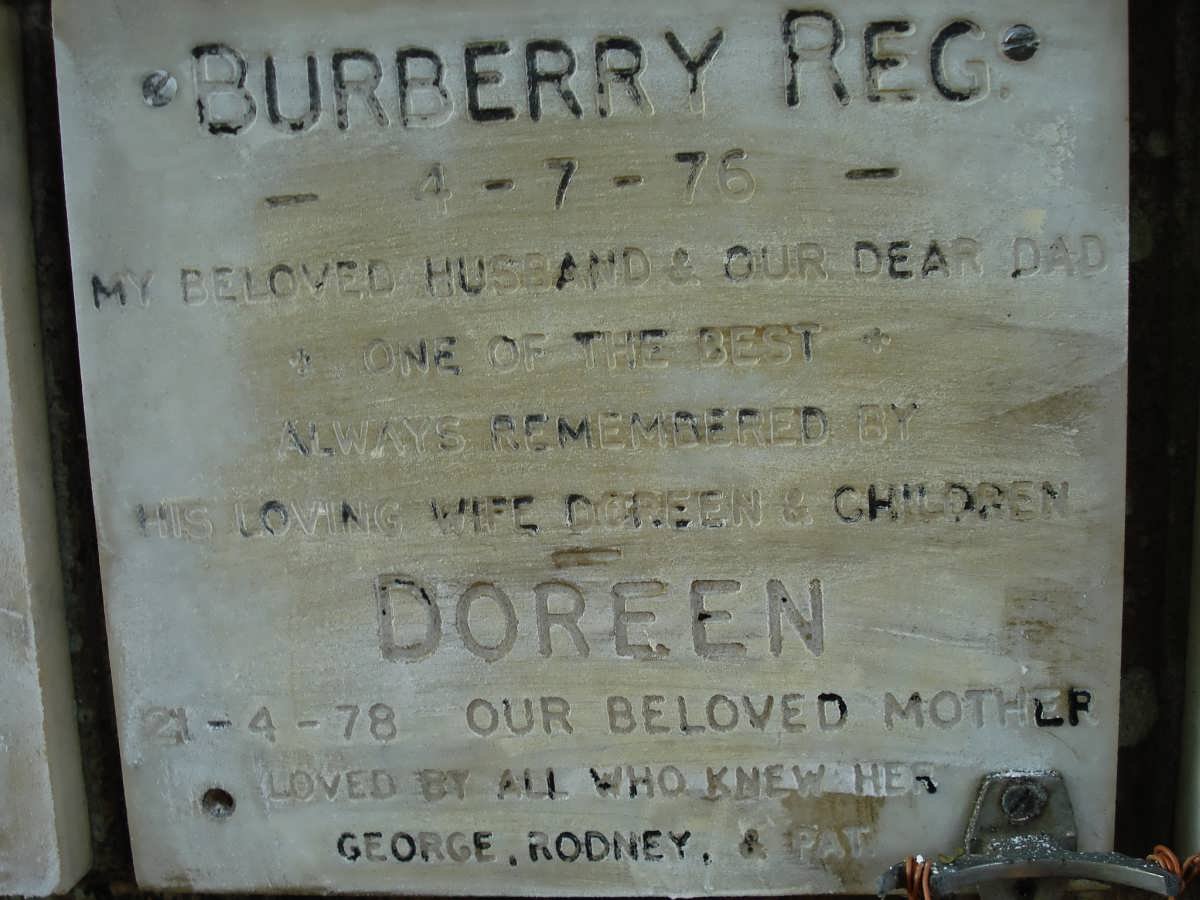 BURBERRY REG.
- 4 - 7 - 76 -
MY BELOVED HUSBAND & OUR DEAR DAD
ONE OF THE BEST
ALWAYS REMEMBERED BY
HIS LOVING WIFE DOREEN & CHILDREN
-
DOREEN
21 - 4 - 78 OUR BELOVED MOTHER
LOVED BY ALL WHO KNEW HER
GEORGE, RODNEY, & PAT